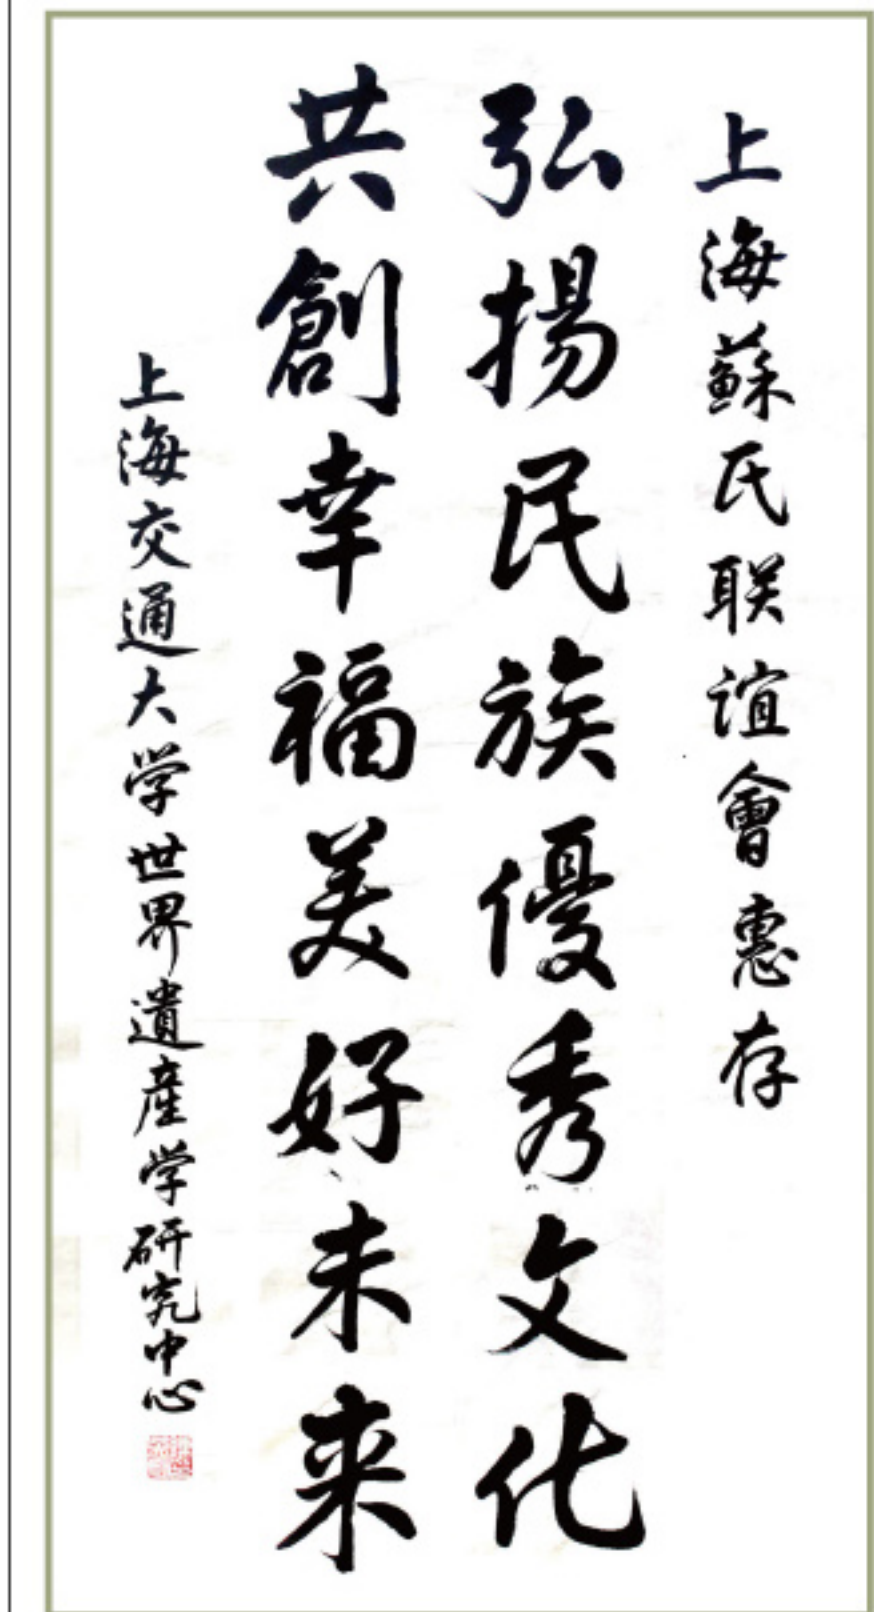 上海蘇氏联谊會惠存
弘揚民族優秀文化
共創幸福美好未来
上海交通大学世界遺産学研究中心